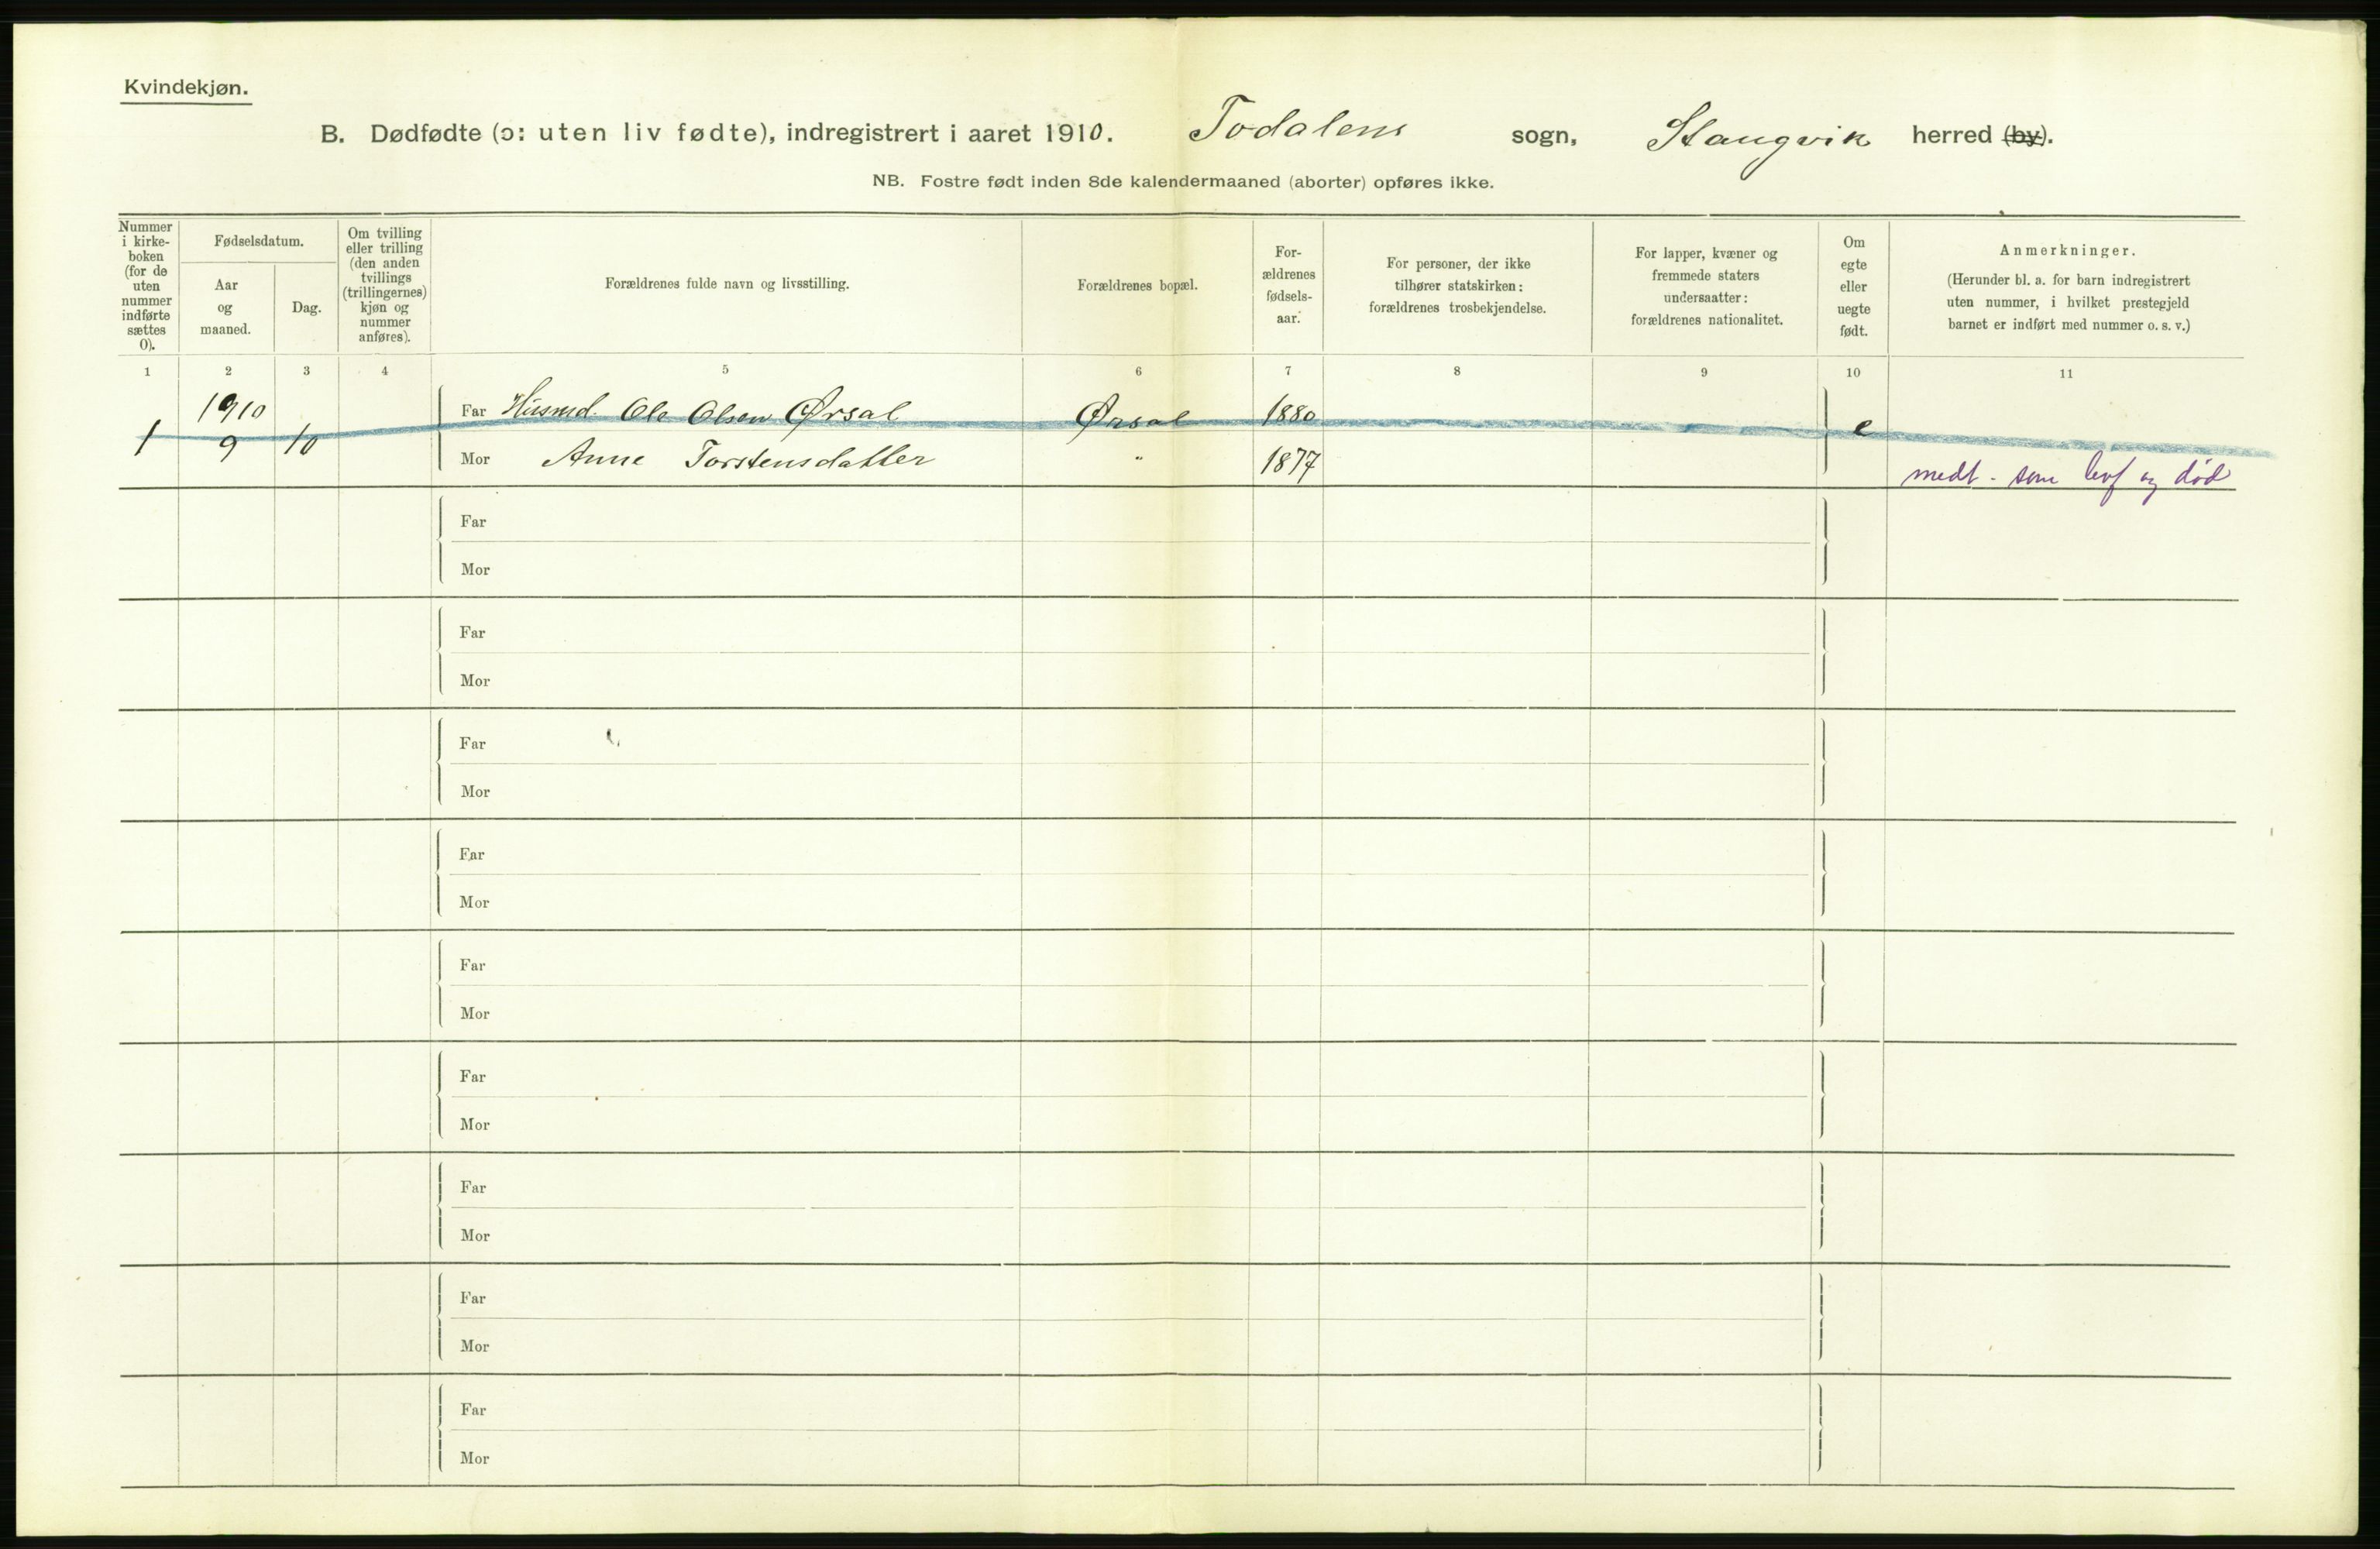 Kvindekjøn.
B. Dødfødte (ɔ: uten liv fødte), indregistrert i aaret 1910. Todalens sogn, Stangvik herred (by).
NB. Fostre født inden 8de kalendermaaned (aborter) opføres ikke.
Nummer
i kirke-
boken
(for de
uten
nummer
indførte
sættes
0).
Fødselsdatum.
Aar
og
maaned.
Dag.
Om tvilling
eller trilling
(den anden
tvillings
(trillingernes)
kjøn og
nummer
anføres).
Forældrenes fulde navn og livsstilling.
Forældrenes bopæl.
For-
ældrenes
fødsels-
aar.
For personer, der ikke
tilhører statskirken:
forældrenes trosbekjendelse.
For lapper, kvæner og
fremmede staters
undersaatter:
forældrenes nationalitet.
Om
egte
eller
uegte
født.
Anmerkninger.
(Herunder bl. a. for barn indregistrert
uten nummer, i hvilket prestegjeld
barnet er indført med nummer o. s. v.)
1 2 3 4 5 6 7 8 9 10 11
1910 Far Husmd. Ole Olsen Ørsal Ørsal 1880
1 9 10 e
Mor Anne Torstensdatter " 1877
medt. som levf og død
Far
Mor
Far
Mor
Far
Mor
Far
Mor
Far
Mor
Far
Mor
Far
Mor
Far
Mor
Far
Mor